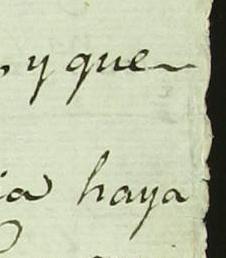 , y que
ia haya